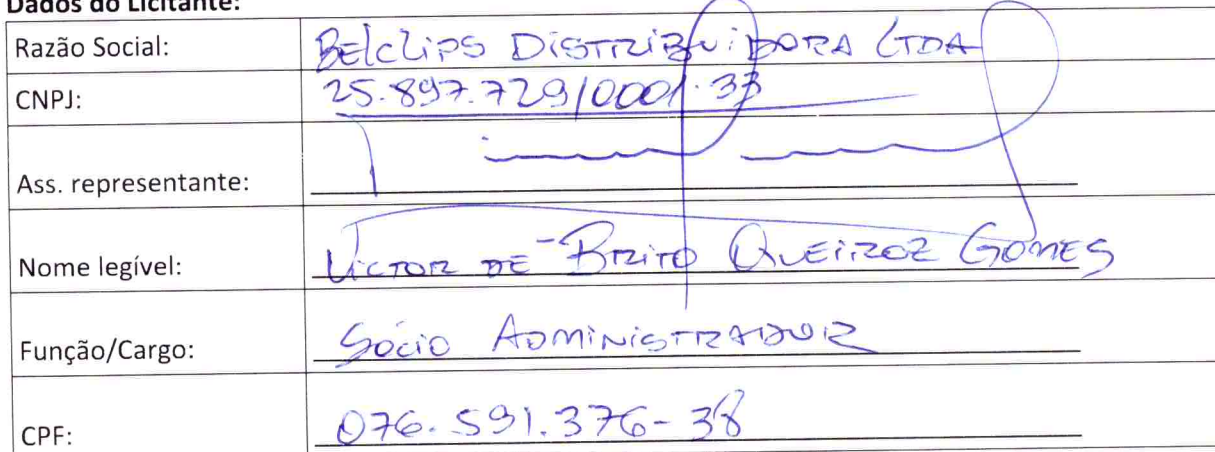 Dados do Licitante:
Razão Social: BELCLIPS DISTRIBUIDORA LTDA
CNPJ: 25.897.729/0001-33
Ass. representante:
Nome legível: VICTOR DE BRITO QUEIROZ GOMES
Função/Cargo: SÓCIO ADMINISTRADOR
CPF: 076.591.376-38